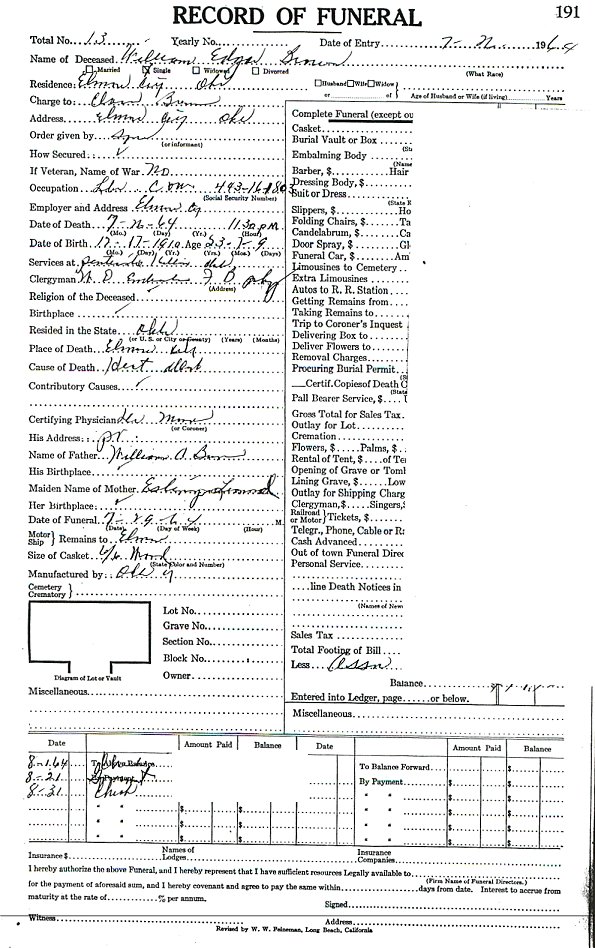 RECORD OF FUNERAL
191
Total No. 13 Yearly No. Date of Entry 7- 196
Name of Deceased William Edgar Brown
Married Single Widowed Divorced (What Race)
Residence: Elmore City Okla
Husband Wife Widow or Age of Husband or Wife (if living) Years
Charge to:
Address Elmore City Okla
Order given by
(or informant)
How Secured:
If Veteran, Name of War No
Occupation
(Social Security Number)
Employer and Address Elmore Cy
Date of Death 7- -64 11:30 P.M.
(Mo.) (Day) (Yr.) (Hour)
Date of Birth 12-17-1910 Age 53-7-9
(Mo.) (Day) (Yr.) (Yrs.) (Mos.) (Days)
Services at
Clergyman
(Address)
Religion of the Deceased
Birthplace
Resided in the State Okla
(or U. S. or City or County) (Years) (Months)
Place of Death Elmore City
Cause of Death
Contributory Causes
Certifying Physician
(or Coroner)
His Address:
Name of Father William A. Brown
His Birthplace
Maiden Name of Mother
Her Birthplace:
Date of Funeral 7-29-64 M.
(Date) (Day of Week) (Hour)
Motor Ship Remains to Elmore
Size of Casket Wood
(State Color and Number)
Manufactured by: Okla
Cemetery Crematory
Lot No.
Grave No.
Section No.
Block No.
Owner
Diagram of Lot or Vault
Miscellaneous
Complete Funeral (except ou
Casket
Burial Vault or Box
(St
Embalming Body
(Name
Barber, $ Hair
Dressing Body, $
Suit or Dress
(State K
Slippers, $ Ho
Folding Chairs, $ Ta
Candelabrum, $ Ca
Door Spray, $ Gl
Funeral Car, $ Am
Limousines to Cemetery
Extra Limousines
Autos to R. R. Station
Getting Remains from
Taking Remains to
Trip to Coroner's Inquest
Delivering Box to
Deliver Flowers to
Removal Charges
Procuring Burial Permit
(S
Certif. Copies of Death C
(State
Pall Bearer Service, $
Gross Total for Sales Tax
Outlay for Lot
Cremation
Flowers, $ Palms, $
Rental of Tent, $ of Te
Opening of Grave or Toml
Lining Grave, $ Low
Outlay for Shipping Charg
Clergyman, $ Singers, $
Railroad or Motor Tickets, $
Telegr., Phone, Cable or Ra
Cash Advanced
Out of town Funeral Direc
Personal Service
line Death Notices in
(Names of New
Sales Tax
Total Footing of Bill
Less Assn
Balance
Entered into Ledger, page or below.
Miscellaneous
Date Amount Paid Balance Date Amount Paid Balance
8-1-64 To Balance Forward $
8-21 By Payment By Payment $ $
8-31 " " $ $
" " $ $ " " $ $
" " $ $ " " $ $
" " $ $ " " $ $
Insurance $ Names of Lodges Insurance Companies
I hereby authorize the above Funeral, and I hereby represent that I have sufficient resources Legally available to
(Firm Name of Funeral Directors.)
for the payment of aforesaid sum, and I hereby covenant and agree to pay the same within days from date. Interest to accrue from
maturity at the rate of % per annum. Signed
Witness Address
Revised by W. W. Peineman, Long Beach, California